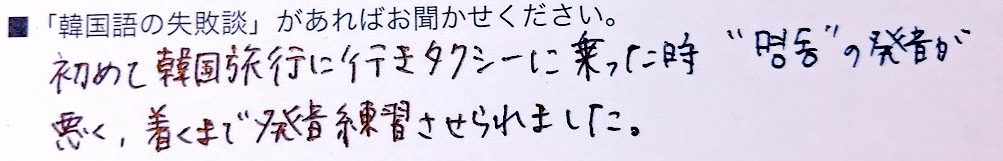 ■「韓国語の失敗談」があればお聞かせください。
初めて韓国旅行に行きタクシーに乗った時 "명동"の発音が
悪く, 着くまで発音練習させられました。